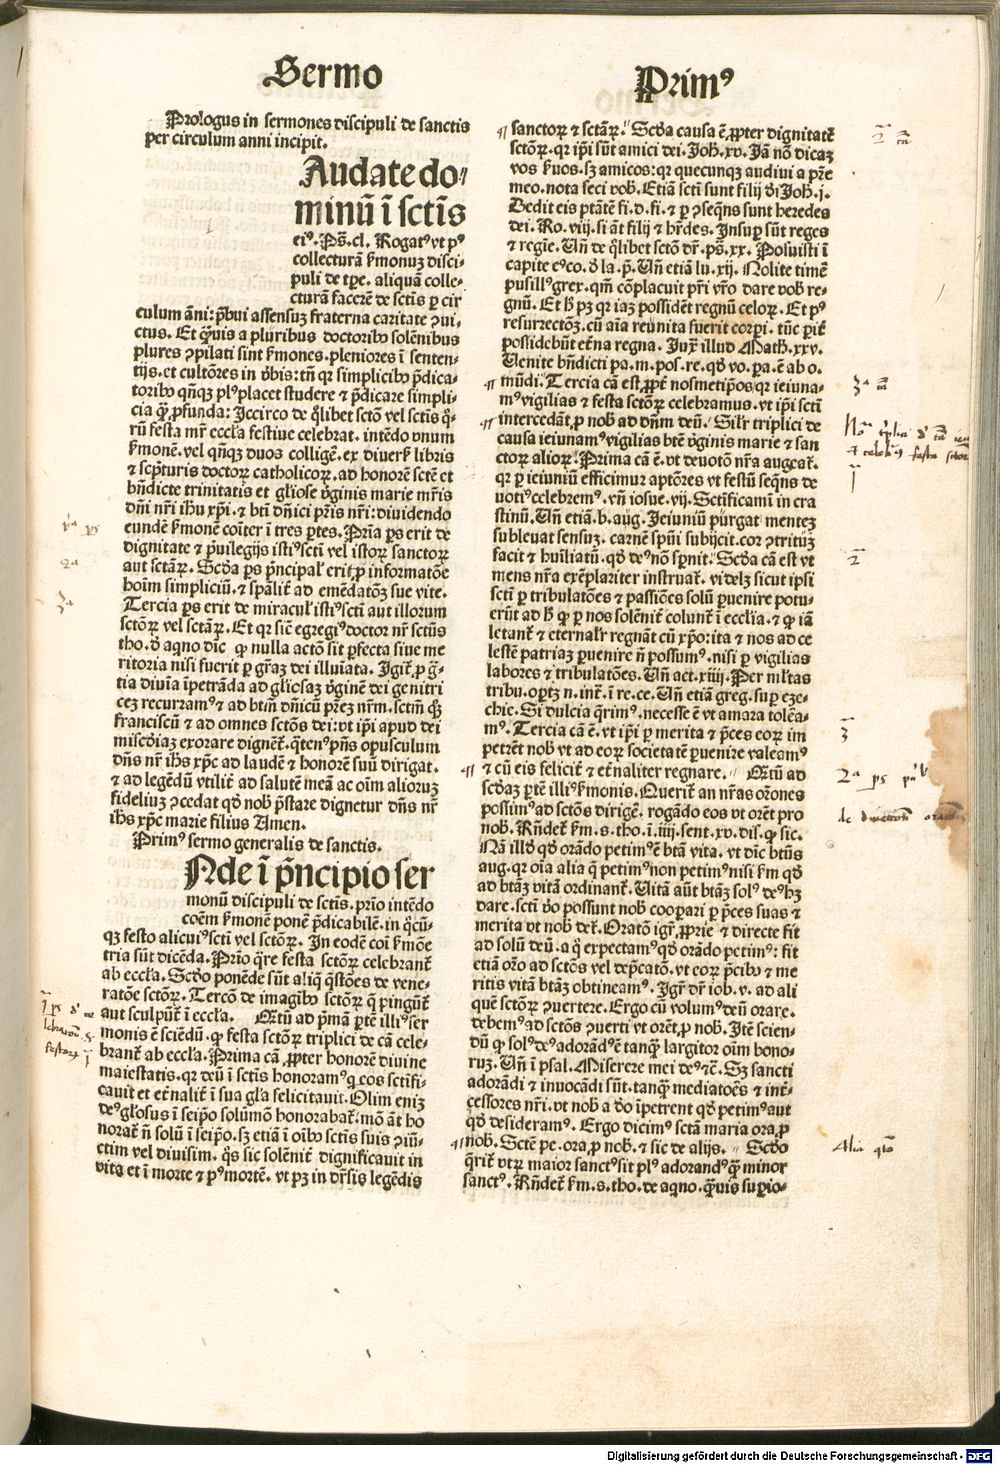 Sermo
Prologus in sermones discipuli de sanctis
per circulum anni incipit.
Audate do⸗
minū ī sctīs
eiꝰ. Pš. cl. Rogatꝰ vt pꝰ
collecturā ẜmonuꝫ disci⸗
puli de tꝑe. aliquā colle⸗
cturā facerē de sctīs ꝑ cir
culum āni: p̄bui assensuꝫ fraterna caritate ꝯui⸗
ctus. Et qͣuis a pluribus doctoribꝰ solēnibus
plures ꝯpilati sint ẜmones. pleniores ī senten⸗
tijs. et cultōres in v̄bis: tn̄ qꝛ simplicibꝰ p̄dica⸗
toribꝰ qn̄qꝫ plꝰ placet studere ⁊ p̄dicare simpli⸗
cia qͣꝫ ꝓfunda: Iccirco de qͦlibet sctō vel sctīs qͦ⸗
rū festa mr̄ eccl̄a festiue celebrat. intēdo vnum
ẜmonē. vel qn̄qꝫ duos colligē. ex diuerẜ libris
⁊ sc̄pturis doctoꝝ catholicoꝝ. ad honorē sctē et
bn̄dicte trinitatis et gl̄iose v̄ginis marie mr̄is
dn̄i nr̄i ihū xp̄i. ⁊ btī dn̄ici pr̄is nr̄i: diuidendo
eundē ẜmonē coīter ī tres ꝑtes. Prīa ꝑs erit de
dignitate ⁊ p̄uilegijs istiꝰ sctī vel istoꝝ sanctoꝝ
aut sctāꝝ. Scd̄a ꝑs p̄ncipal̕ erit ꝓ informatōe
hoīm simpliciū. ⁊ sp̄alit̕ ad emēdatōꝫ sue vite.
Tercia ꝑs erit de miracul̕ istiꝰ sctī aut illorum
sctōꝝ vel sctāꝝ. Et qꝛ sic̄ egregiꝰ doctor nr̄ sctūs
tho. d̕ aqno dīc ꝙ nulla actō sit ꝑfecta siue me
ritoria nisi fuerit ꝑ gr̄aꝫ dei illuīata. Igit̕ ꝓ gͣ⸗
tia diuīa īpetrāda ad gl̄iosaꝫ v̄ginē dei genitri
cez recurramꝰ ⁊ ad btm̄ dn̄icū pr̄eꝫ nr̄m. sctm̄ qͣꝫ
franciscū ⁊ ad omnes sctōs dei: vt ip̄i apud dei
misc̄diaꝫ exorare dignēt̕. qͣtenꝰ pn̄s opusculum
dn̄s nr̄ ihs xp̄c ad laudē ⁊ honorē suū dirigat.
⁊ ad legēdū vtilit̕ ad salutē meā ac oīm alioruꝫ
fideliuꝫ ꝯcedat qd̕ nob̕ p̄stare dignetur dn̄s nr̄
ihs xp̄c marie filius Amen.
Primꝰ sermo generalis de sanctis.
Nde ī p̄ncipio ser
monū discipuli de sctīs. prīo intēdo
coēm ẜmonē ponē p̄dicabilē. in qͦcū⸗
qꝫ festo alicuiꝰ sctī vel sctōꝝ. In eodē coī ẜmōe
tria sūt dicēda. Prīo qͣre festa sctōꝝ celebrant̕
ab eccl̄a. Scd̄o ponēde sūt aliq̄ qōnes de vene⸗
ratōe sctōꝝ. Tercō de imagībꝰ sctōꝝ q̄ pingūt̕
aut sculpūt̕ ī eccl̄a. Qͣtū ad pͥmā ꝑtē illiꝰ ser
monis ē sciēdū. ꝙ festa sctōꝝ triplici de cā cele⸗
brant̕ ab eccl̄a. Prima cā. ꝓpter honorē diuine
maiestatis. qꝛ deū ī sctīs honoramꝰ q eos sctīfi⸗
cauit et et̕nalit̕ ī sua gl̄a felicitauit. Olim eniꝫ
deꝰ gl̄osus ī seip̄o solūmō honorabat̕. mō aūt ho
norat̕ n̄ solū ī seip̄o. sꝫ etiā ī oībꝰ sctīs suis ꝯiū⸗
ctim vel diuisim. qͦs sic solēnit̕ dignificauit in
vita et ī morte ⁊ pꝰ mortē. vt pꝫ in dr̄sis legēdis
Primꝰ
sanctoꝝ ⁊ sctāꝝ. Scd̄a causa ē. ꝓpter dignitatē
sctōꝝ. qꝛ ip̄i sūt amici dei. Joh̄. xv. Jā nō dicaꝫ
vos ẜuos. sꝫ amicos: qꝛ quecunqꝫ audiui a pr̄e
meo. nota feci vob̕. Etiā sctī sunt filij d̕i Joh̄. j.
Dedit eis ptātē fi. d. fi. ⁊ ꝑ ꝯseqn̄s sunt heredes
dei. Ro. viij. si āt filij ⁊ hr̄des. Insuꝑ sūt reges
⁊ regie. Vn̄ de qͦlibet sctō dr̄. ps̄. xx. Posuisti ī
capite eꝰ co. d̕ la. p̄. Vn̄ etiā lu. xij. Nolite timē
pusillꝰ grex. qm̄ cōplacuit pr̄i vr̄o dare vob̕ re⸗
gnū. Et h̕ pꝫ qꝛ iaꝫ possidēt regnū celoꝝ. Et pꝰ
resurrectōꝫ. cū aīa reunita fuerit corꝑi. tūc pit̕
possidebūt et̕na regna. Jux̄ illud Math̄. xxv.
Venite bn̄dicti pa. m. pos. re. qd̕ vo. pa. ē ab o.
mūdi. Tercia cā est ꝓpt̕ nosmetip̄os qꝛ ieiuna⸗
mꝰ vigilias ⁊ festa sctōꝝ celebramus. vt ip̄i sctī
intercedāt ꝓ nob̕ ad dn̄m deū. Sil̕r triplici de
causa ieiunamꝰ vigilias btē v̄ginis marie ⁊ san
ctoꝝ alioꝝ. Prima cā ē. vt deuotō nr̄a augeat̕.
qꝛ ꝑ ieiuniū efficimur aptōres vt festū seqn̄s de
uotiꝰ celebremꝰ. vn̄ iosue. vij. Sctīficamī in cra
stinū. Vn̄ etiā. b. aug. Jeiuniū purgat menteꝫ
subleuat sensuꝫ. carnē sp̄ui subijcit. cor ꝯtrituꝫ
facit ⁊ hu̅iliatū. qd̕ deꝰ nō sꝑnit. Scd̄a cā est vt
mens nr̄a exēplariter instruat̕. videlꝫ sicut ipsi
sctī ꝑ tribulatōes ⁊ passiōes solū ꝑuenire potu⸗
erūt ad h̕ ꝙ ꝑ nos solēnit̕ colunt̕ ī eccl̄ia. ⁊ ꝙ iā
letant̕ ⁊ eternal̕r regnāt cū xp̄o: ita ⁊ nos ad ce
lestē patriaꝫ ꝑuenire n̄ possumꝰ. nisi ꝑ vigilias
labores ⁊ tribulatōes. Vn̄ act. xiiij. Per ml̕tas
tribu. oꝑtꝫ n. int̕. ī re. ce. Vn̄ etiā greg. suꝑ eze⸗
chie. Si dulcia qͣrimꝰ. necesse ē vt amara tolēa⸗
mꝰ. Tercia cā ē. vt ip̄i ꝑ merita ⁊ p̄ces eoꝝ im
petrēt nob̕ vt ad eoꝝ societatē ꝑuenire valeamꝰ
⁊ cū eis felicit̕ ⁊ et̕naliter regnare. Qͣtū ad
scd̄aꝫ ꝑtē illiꝰ ẜmonis. Querit̕ an nr̄as or̄ones
possimꝰ ad sctōs dirigē. rogādo eos vt orēt pro
nob̕. Rn̄det̕ ẜm. s. tho. ī. iiij. sent. xv. dis. ꝙ sic.
Nā illd̕ qd̕ orādo petimꝰ ē btā vita. vt dīc btūs
aug. qꝛ oīa alia q̄ petimꝰ non petimꝰ nisi ẜm qd̕
ad btāꝫ vitā ordinant̕. Vitā aūt btāꝫ solꝰ deꝰ hꝫ
dare. sctī v̄o possunt nob̕ cooꝑari ꝑ p̄ces suas ⁊
merita vt nob̕ det̕. Oratō igr̄. ꝓprie ⁊ directe fit
ad solū deū. a q̄ expectamꝰ qd̕ orādo petimꝰ: fit
etiā or̄o ad sctōs vel dep̄catō. vt eoꝝ p̄cibꝰ ⁊ me
ritis vitā btāꝫ obtineamꝰ. Igr̄ dr̄ iob. v. ad ali
quē sctōꝝ ꝯuertere. Ergo cū volumꝰ deū orare.
debemꝰ ad sctōs ꝯuerti vt orēt ꝓ nob̕. Itē scien⸗
dū ꝙ solꝰ deꝰ adorādꝰ ē tanqͣꝫ largitor oīm bono⸗
ruꝫ. Vn̄ ī psal. Miserere mei deꝰ ⁊c̄. Sꝫ sancti
adorādi ⁊ inuocādi sūt. tanqͣꝫ mediatoēs ⁊ int̕⸗
cessores nr̄i. vt nob̕ a d̕o īpetrent qd̕ petimꝰ aut
qd̕ desideramꝰ. Ergo dicimꝰ sctā maria ora. ꝓ
nob̕. Sctē pe. ora. ꝓ nob̕. ⁊ sic de alijs. Scd̄o
qͣrit̕ vtꝝ maior sanctꝰ sit plꝰ adorandꝰ qͣꝫ minor
sanctꝰ. Rn̄det̕ ẜm. s. tho. de aqno. qͣuis suꝑio⸗
Digitalisierung gefördert durch die Deutsche Forschungsgemeinschaft - DFG